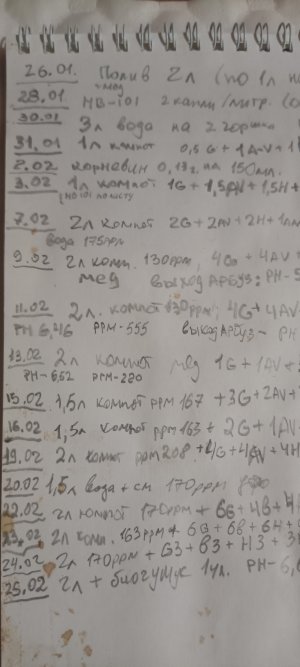 26.01. Полив 2л (по 1л н
мёд
28.01 HB-101 2 капли/литр. (о
30.01 3л вода на 2 горшка
31.01 1л компот 0,5G+1AV+1
2.02 корневин 0,13г. на 150мл.
3.02 1л компот 1G+1,5AV+1,5H+
HB101 по листу
7.02 2л компот 2G+2AV+2H+1AM
Вода 175ppm
9.02 2л комп. 130ppm, 4G+4AV+
мёд выход АРБУЗ: PH-5
11.02 2л. компот 130ppm, 4G+4AV
PH 6,46 PPM-555 выход АРБУЗ- PH
13.02 2л компот мёд 1G+1AV+
PH-6,52 PPM-280
15.02 1,5л компот ppm 167 +3G+2AV+
16.02 1,5л компот ppm 163 + 2G+1AV
19.02 2л компот ppm 208 +4G+4AV+4H
20.02 1,5л вода + см 170ppm
22.02 2л компот 170ppm + 6G+4B+4
23.02 2л комп. 163ppm + 6G+6B+6H+
24.02 2л 170ppm + G3+B3+H3+3
25.02 2л + биогумус 1ч.л. PH-6,